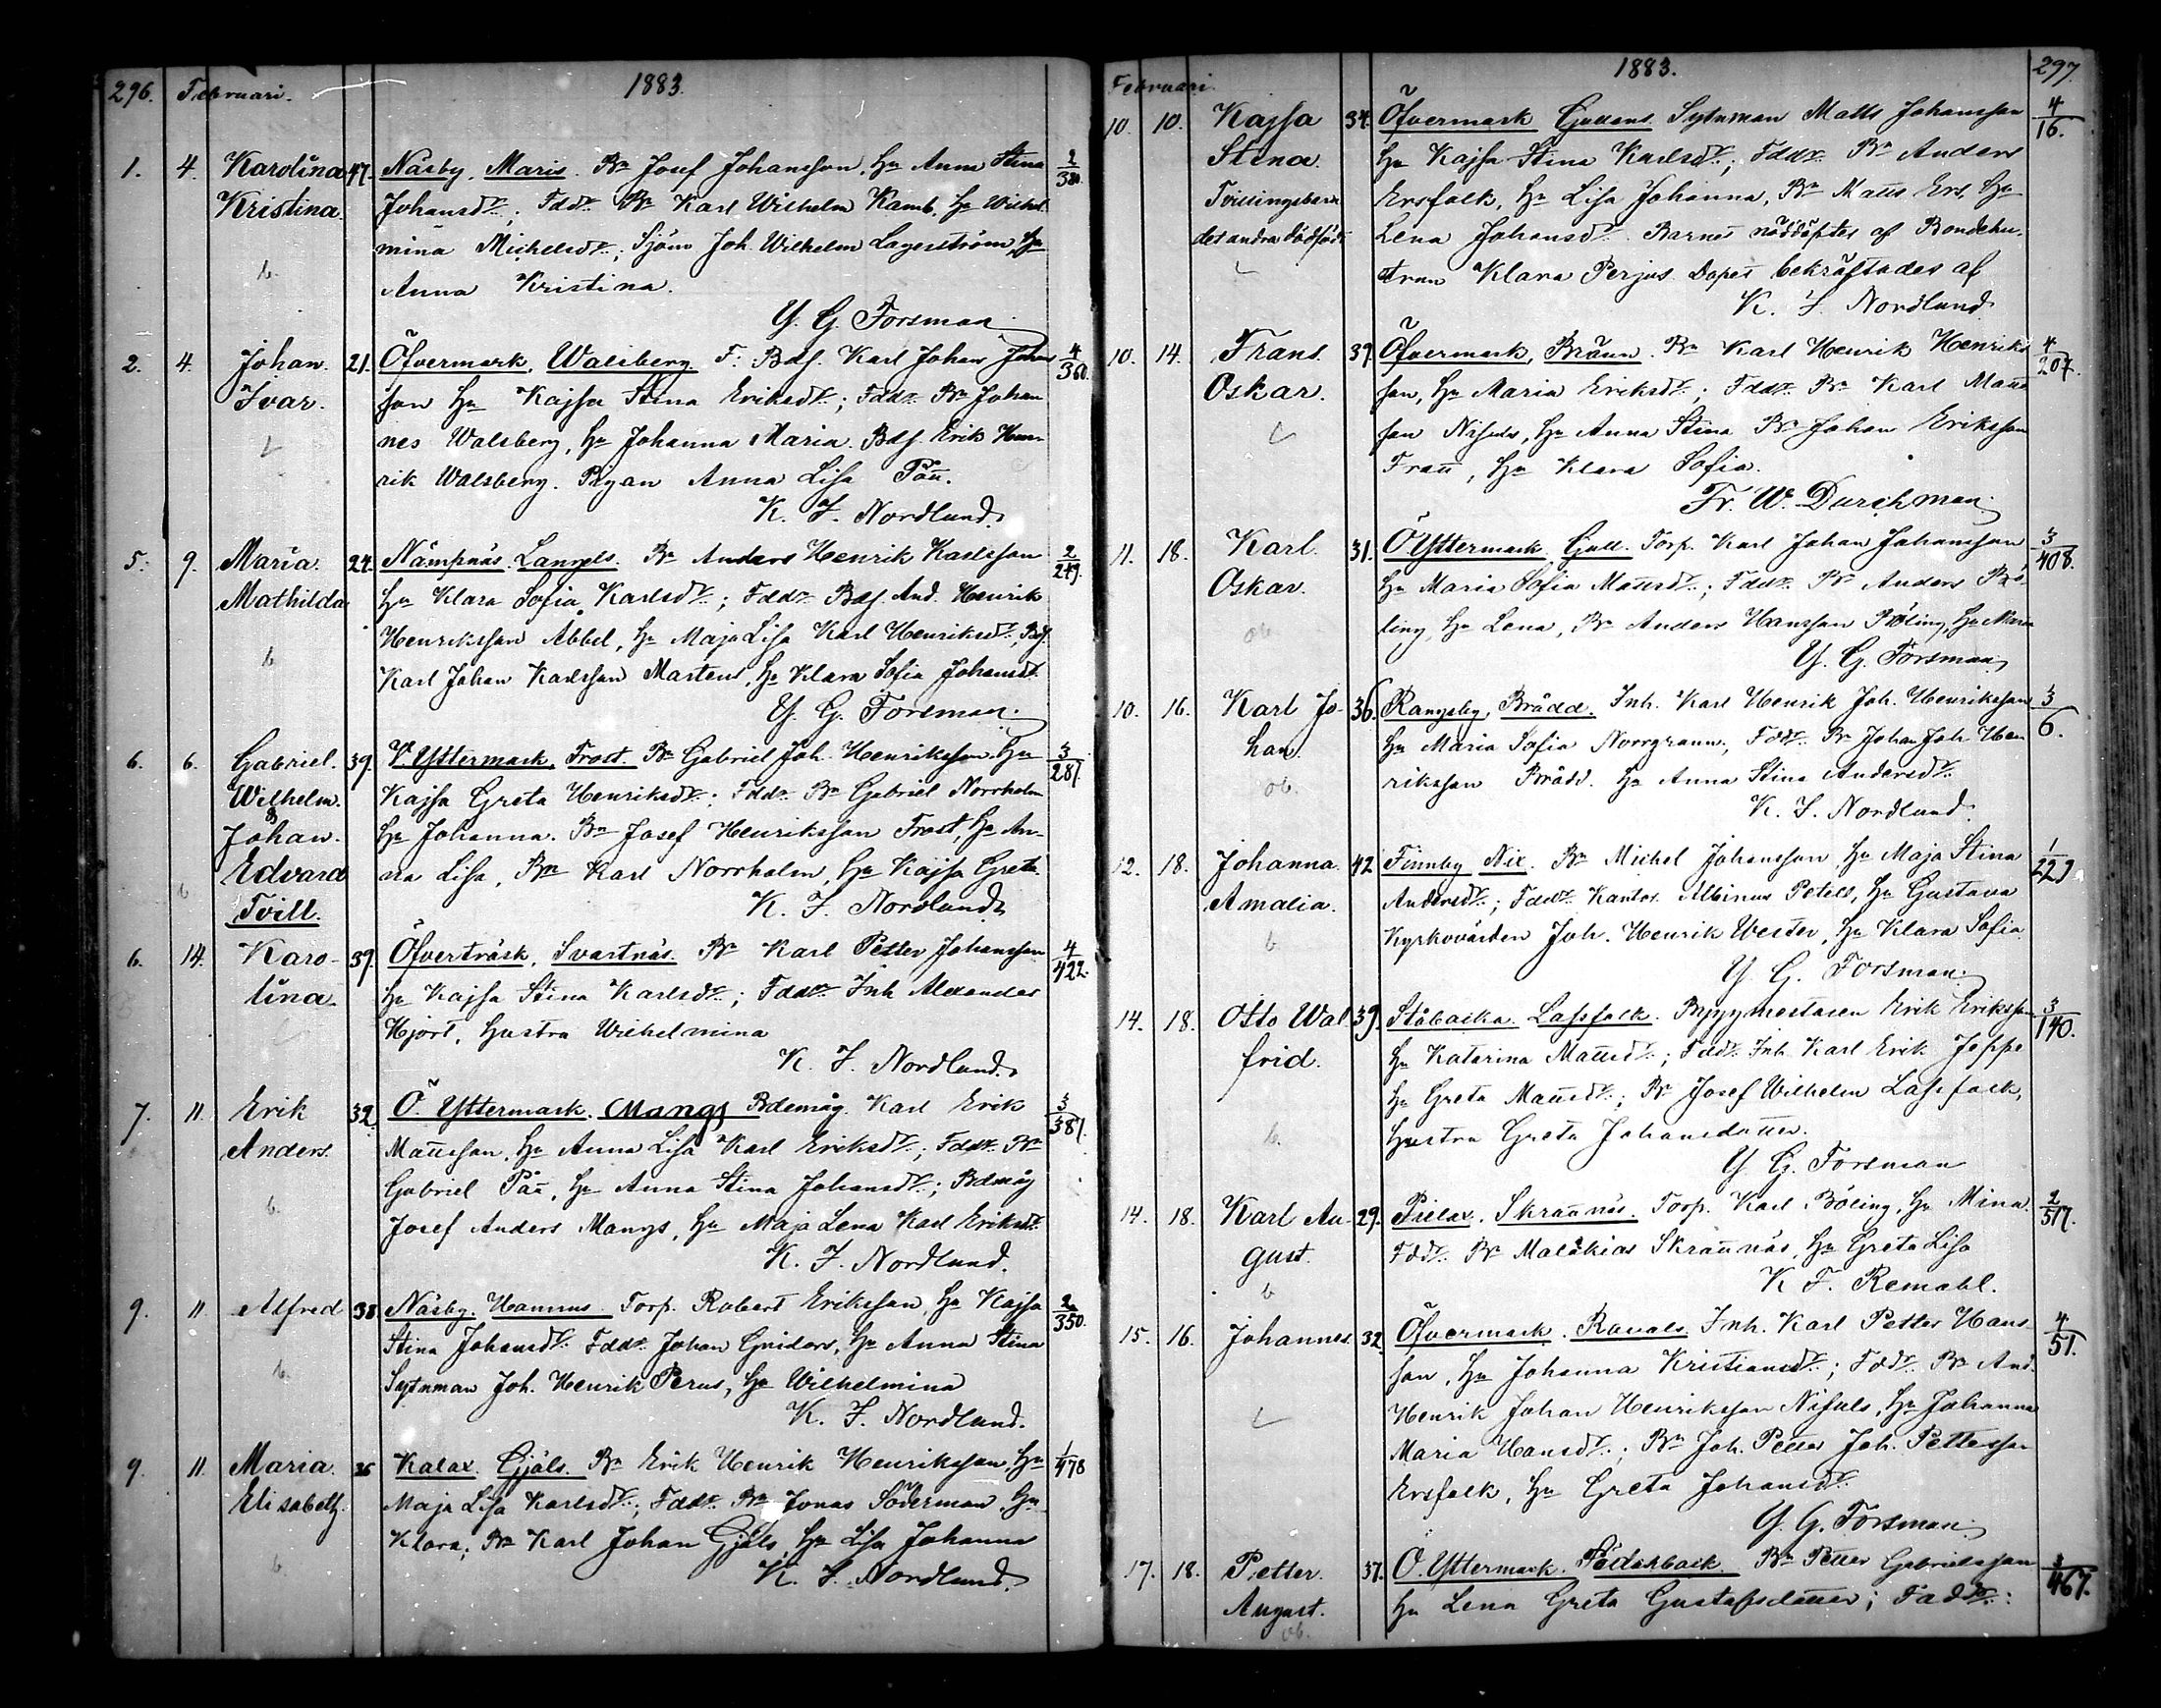 296. Februari. 1883.
1. 4. Karolina 47. Näsby, Maris. Bn Josef Johansson, Hu Anna Stina 2/380.
Kristina. Johansdr.; Fddr. Bn Karl Wilhelm Kamb, Hu Wilhel
b. mina Michelsdr.; Sjöm Joh. Wilhelm Lagerström, Hu
Anna Kristina.
Y. G. Forsman
2. 4. Johan 21. Öfvermark, Walsberg. F. Bdš. Karl Johan Johans 4/360.
Ivar. son Hu Kajsa Stina Eriksdr.; Fddr. Bn Johan
nes Walsberg, Hu Johanna Maria. Bdš. Erik Hen-
rik Walsberg. Pigan Anna Lisa Pått.
K. F. Nordlund.
5. 9. Maria 24. Nämpnäs. Langels. Bn Anders Henrik Karlsson 2/249.
Mathilda Hu Klara Sofia Karlsdr.; Fddr. Bdš. And. Henrik
Henriksson Abbel, Hu Maja Lisa Karl Henriksdr.; Bdš.
b Karl Johan Karlsson Martens, Hu Klara Sofia Johansdr.
Y. G. Forsman.
6. 6. Gabriel 39. V. Yttermark, Frost. Bn Gabriel Joh. Henriksson, Hu 3/281.
Wilhelm. Kajsa Greta Henriksdr.; Fddr. Bn Gabriel Norrholm
&
Johan Hu Johanna. Bn Josef Henriksson Frost, Hu An-
Edvard na Lisa, Bn Karl Norrholm, Hu Kajsa Greta.
b Tvill. K. F. Nordlund
6. 14. Karo- 39. Öfverträsk, Svartnäs. Bn Karl Petter Johansson 4/422.
lina. Hu Kajsa Stina Karlsdr.; Fddr. Inh Alexander
Hjort, hustru Wilhelmina
K. F. Nordlund.
7. 11. Erik 32. Ö. Yttermark. Mangs Bdemåg Karl Erik 3/381.
Anders. Mattsson, Hu Anna Lisa Karl Eriksdr.; Fddr. Bn
Gabriel Pått, Hu Anna Stina Johansdr.; Bdmåg
b. Josef Anders Mangs, Hu Maja Lena Karl Eriksdr.
K. F. Nordlund.
9. 11. Alfred 38. Näsby, Hannus. Torp. Robert Eriksson, Hu Kajsa 2/350.
Stina Johansdr. Fddr. Johan Gridors, Hu Anna Stina
b. Sytnman Joh. Henrik Perus, Hu Wilhelmina
K. F. Nordlund.
9. 11. Maria 26 Kalax. Gjäls. Bn Erik Henrik Henriksson, Hu 1/478
Elisabeth. Maja Lisa Karlsdr.; Fddr. Bn Jonas Söderman, Hu
b Klara; Bn Karl Johan Gjäls, Hu Lisa Johanna
K. F. Nordlund.
Februari. 1883. 297.
10. 10. Kajsa 34. Öfvermark Sytnman Matts Johansson 4/16.
Stina Hu Kajsa Stina Karlsdr.; Fddr. Bn Anders
Tvillingsbarn Ersfolk, Hu Lisa Johanna, Bn Matts Ers, Hu
det andra dödfödt Lena Johansdr. Barnet nöddöptes af Bondehu-
strun Klara Perjus. Dopet bekräftades af
K. F. Nordlund
10. 14. Frans 39. Öfvermark, Bränn. Bn Karl Henrik Henriks 4/207.
Oskar. son, Hu Maria Eriksdr.; Fddr. Bn Karl Matts
son Nisuls, Hu Anna Stina Bn Johan Eriksson
Fratt, Hu Klara Sofia.
Fr. W. Durchman.
11. 18. Karl 31. Ö Yttermark Gull. Torp. Karl Johan Johansson 3/408.
Oskar. Hu Maria Sofia Mattsdr.; Fddr. Bn Anders Rö
ob ling, Hu Lena, Bn Anders Hansson Röling, Hu Maria
Y. G. Forsman
10. 16. Karl Jo- 36. Rangsby, Brådd. Inh. Karl Henrik Joh. Henriksson 3/6.
han. Hu Maria Sofia Norrgrann; Fddr. Bn Johan Joh. Hen
ob. riksson Brådd. Hu Anna Stina Andersdr.
K. F. Nordlund.
12. 18. Johanna 42 Finnby Nix. Bn Michel Johansson, Hu Maja Stina 1/229.
Amalia. Andersdr.; Fddr. Kantor Albinus Petell, Hu Gustava
b Kyrkovärden Joh. Henrik Wester, Hu Klara Sofia.
Y. G. Forsman.
14. 18. Otto Wal 39. Ståbacka. Lassfolk. Byggmestaren Erik Eriksson 3/140.
frid. Hu Katarina Mattsdr.; Fddr. Inh. Karl Erik Jeppe
Hu Greta Mattsdr.; Bn Josef Wilhelm Lassfolk,
b. hustru Greta Johansdotter.
Y. G. Forsman
14. 18. Karl Au- 29. Pielax. Skrattnäs. Torp. Karl Böling, Hu Mina 2/517.
gust. Fddr. Bn Malakias Skrattnäs, Hu Greta Lisa
b K F. Remahl.
15. 16. Johannes. 32. Öfvermark. Ravals. Inh. Karl Petter Hans 4/51.
son, Hu Johanna Kristiansdr.; Fddr. Bn And.
Henrik Johan Henriksson Nisuls, Hu Johanna
Maria Hansdr.; Bn Joh. Petter Joh. Pettersson
Ersfolk, Hu Greta Johansdr.
Y. G. Forsman
17. 18. Petter 37. Ö. Yttermark. Söderback. Bn Petter Gabrielsson 3/467.
August. Hu Lena Greta Gustafsdotter; Faddr.:
ob.